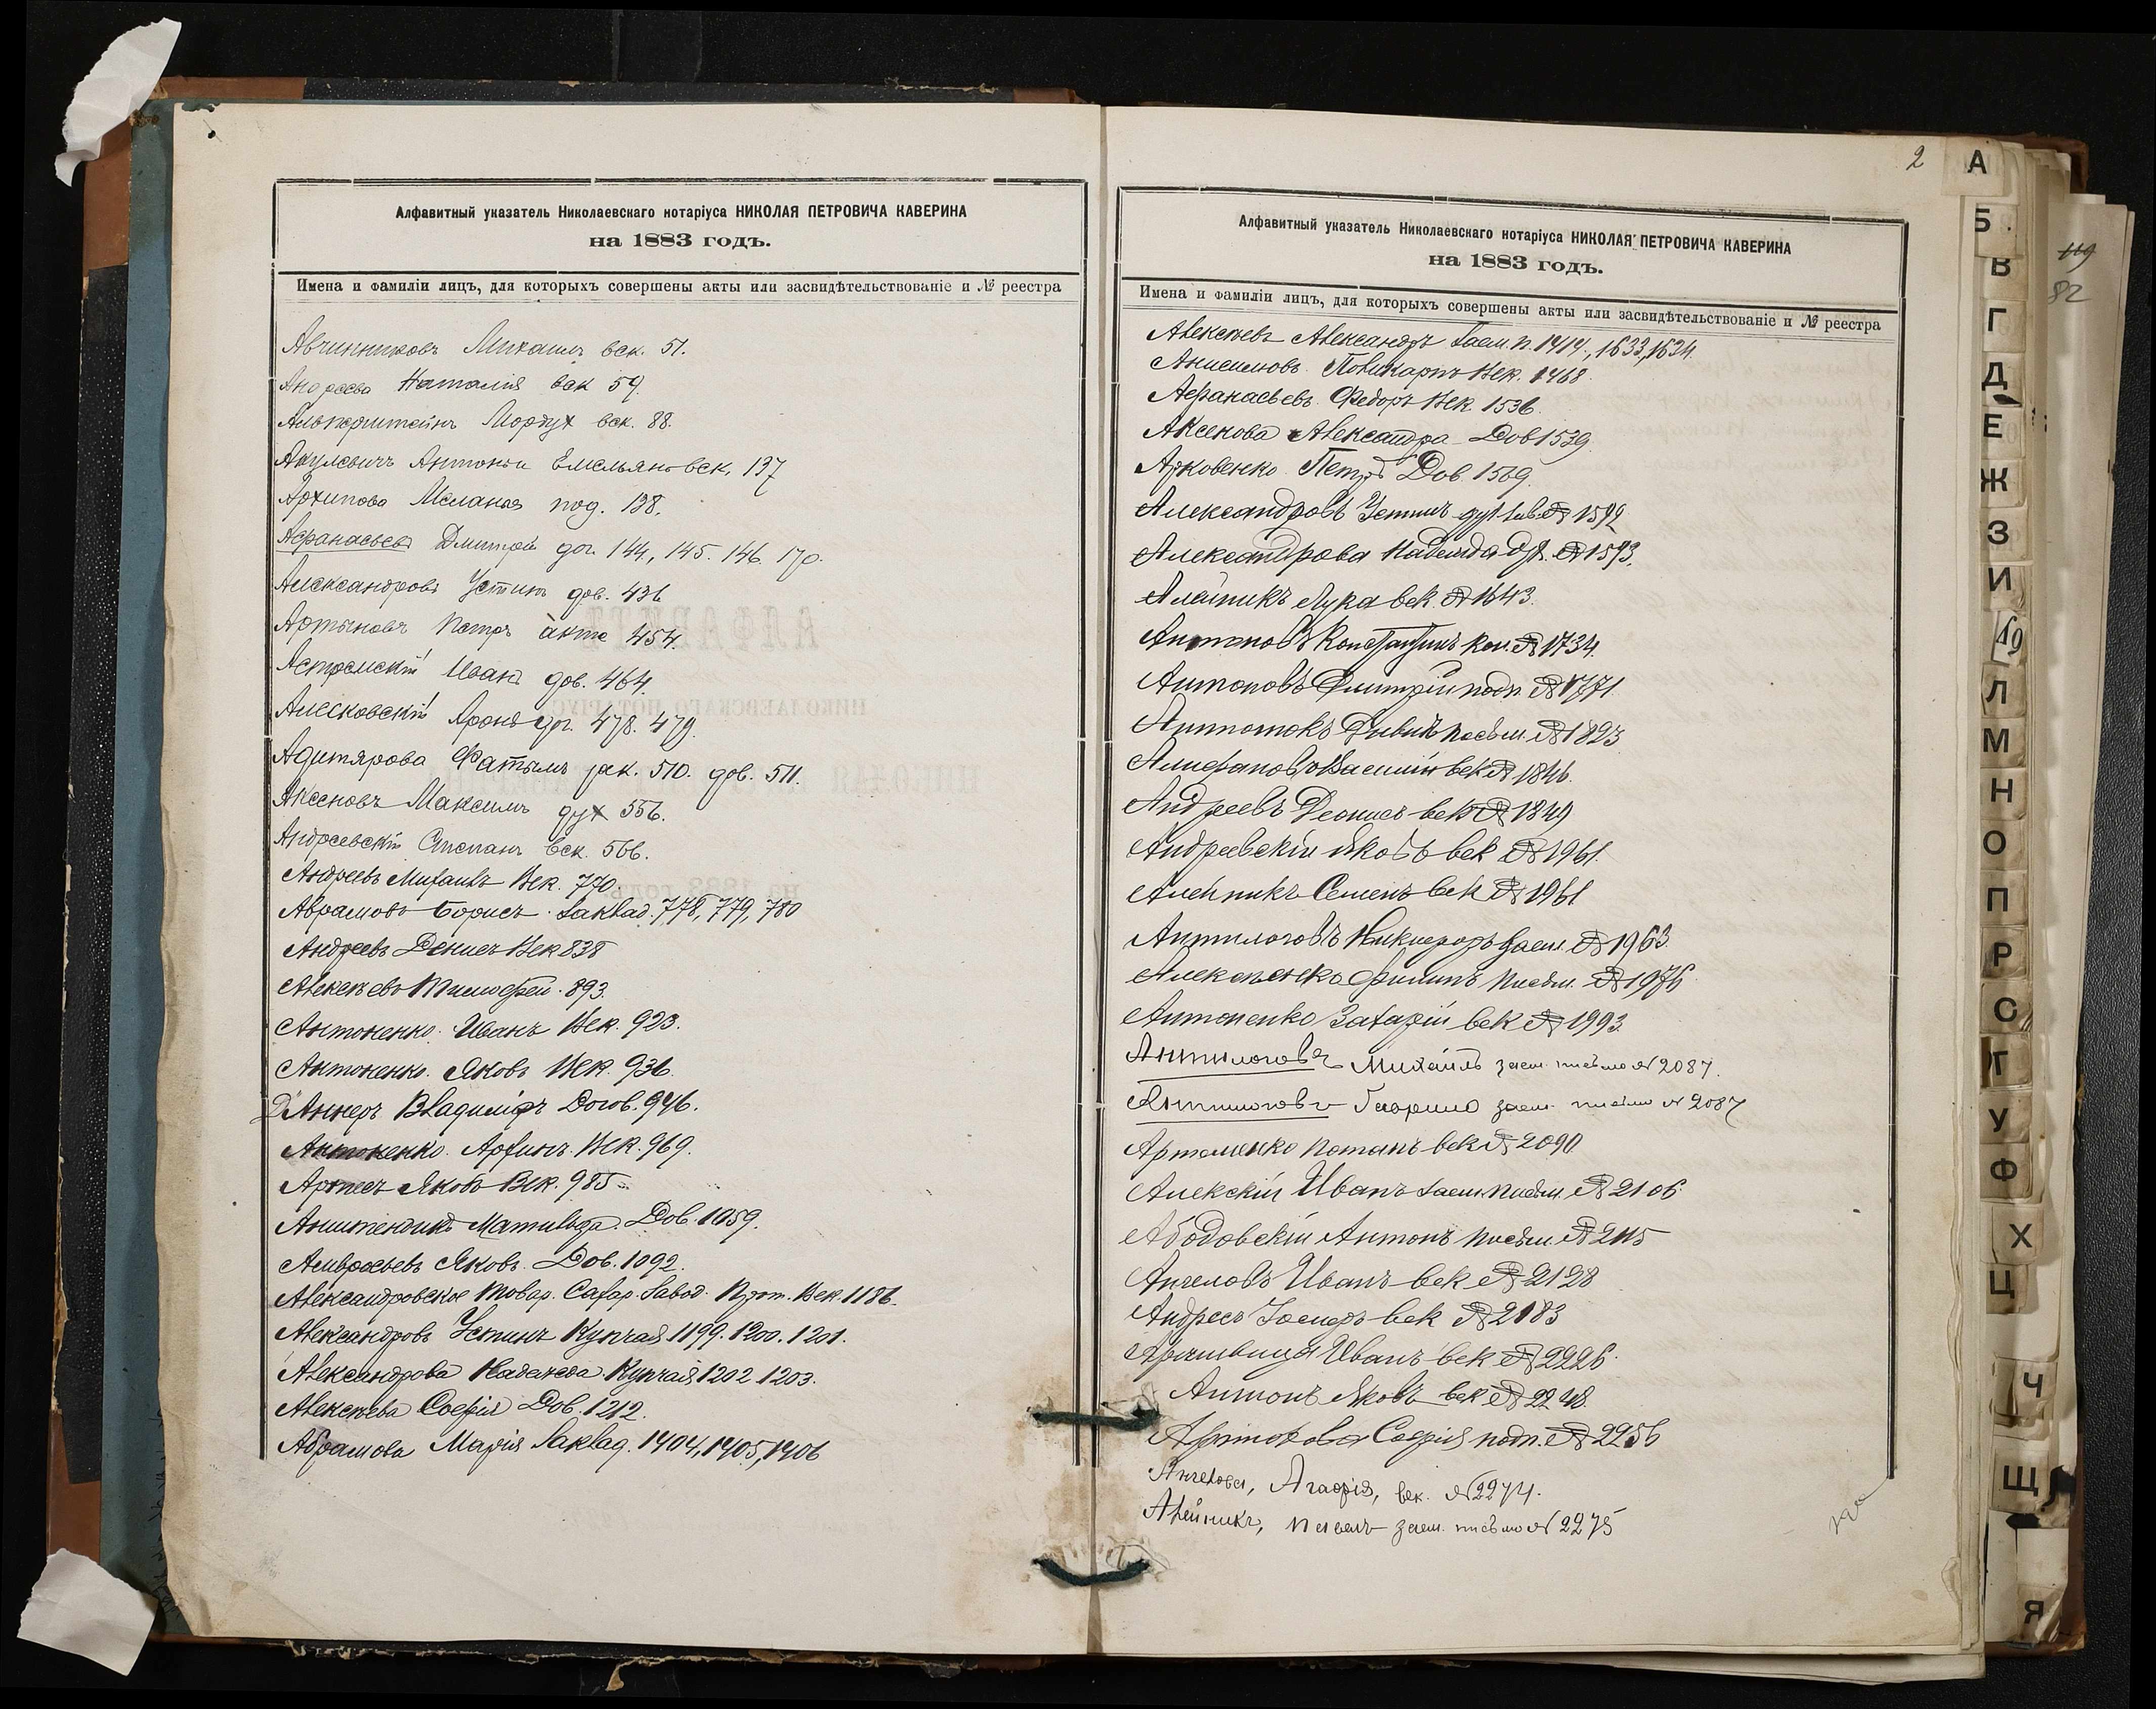 Алфавитный указатель Николаевскаго нотаріуса НИКОЛАЯ ПЕТРОВИЧА КАВЕРИНА
на 1883 годъ.
Имена и фамиліи лицъ, для которыхъ совершены акты или засвидѣтельствованіе и № реестра
Авчинниковъ Михаилъ век. 51.
Андреева Наталія век 59.
Мордух век. 88.
Акулевичъ Антонъ Емельянов век. 137
Архипова Меланья под. 138.
Афанасьевъ Дмитрій дог. 144, 145. 146. 170.
Александровъ Устинъ дов. 436
Артыновъ Петръ акта 454.
Иванъ дов. 464.
478. 479.
510. дов. 511.
Аксеновъ Максимъ дух 556.
Андреевскій Степанъ век. 566.
Андреевъ Михаилъ Век. 770.
Абрамовъ Борисъ Заклад. 778, 779, 780
Андреевъ Денисъ Век 838
Алексѣевъ Тимофей. 893.
Антоненко. Иванъ Век. 923.
Антоненко. Яковъ Век. 936.
Владиміръ Догов. 946.
Антоненко. Архипъ. Век. 969.
Яковъ Век. 985
Матильда. Дов. 1059.
Амвросьевъ Яковъ. Дов. 1092.
Александровское Товар. Сахар. Завод. Прот. Век. 1186.
Александровъ Устинъ Купчая 1199. 1200. 1201.
Александрова Надежда Купчая 1202 1203.
Алексѣева Софія Дов. 1212.
Абрамова Марія Заклад. 1404, 1405, 1406
2
Алфавитный указатель Николаевскаго нотаріуса НИКОЛАЯ ПЕТРОВИЧА КАВЕРИНА
на 1883 годъ.
Имена и фамиліи лицъ, для которыхъ совершены акты или засвидѣтельствованіе и № реестра
Алексѣевъ Александръ Заем. п. 1414, 1633, 1634.
Анисимовъ Поликарпъ Век. 1468.
Афанасьевъ Федоръ Век 1536.
Аксенова Александра Дов 1539
Арковенко Петръ Дов. 1569.
Александровъ Устинъ № 1592
Александрова Надежда № 1593.
Алейникъ Лука век. № 1643.
Антоновъ Константинъ № 1734.
Антоновъ Дмитрій подп. № 1771.
Давидъ письм. № 1823
Алифановъ Василій век № 1846.
Андреевъ Денисъ век № 1849
Андреевскій Яковъ век № 1961.
Алейникъ Семенъ век № 1961
Антилоговъ Никифоръ заем. № 1963.
Алексѣенко Филипъ письм. № 1976
Антоненко Захарій век № 1993.
Антилоговъ Михаилъ заем. письмо № 2087.
Антилоговъ Гаврило заем. письмо № 2087
Артеменко Потапъ век № 2090
Иванъ заем. письм. № 2106.
Абодовскій Антонъ письм. № 2115
Ангеловъ Иванъ век № 2128
Андресъ Іосифъ век № 2183
Иванъ век № 2226.
Антонъ Яковъ век № 2248.
Софія подп. № 2256
Ангелова, Агафія, век. № 2274.
Алейникъ, Павелъ заем. письмо № 2275
А
Б
В
Г
Д
Е
Ж
З
И
Л
М
Н
О
П
Р
С
Т
У
Ф
Х
Ц
Ч
Щ
Я
119
82